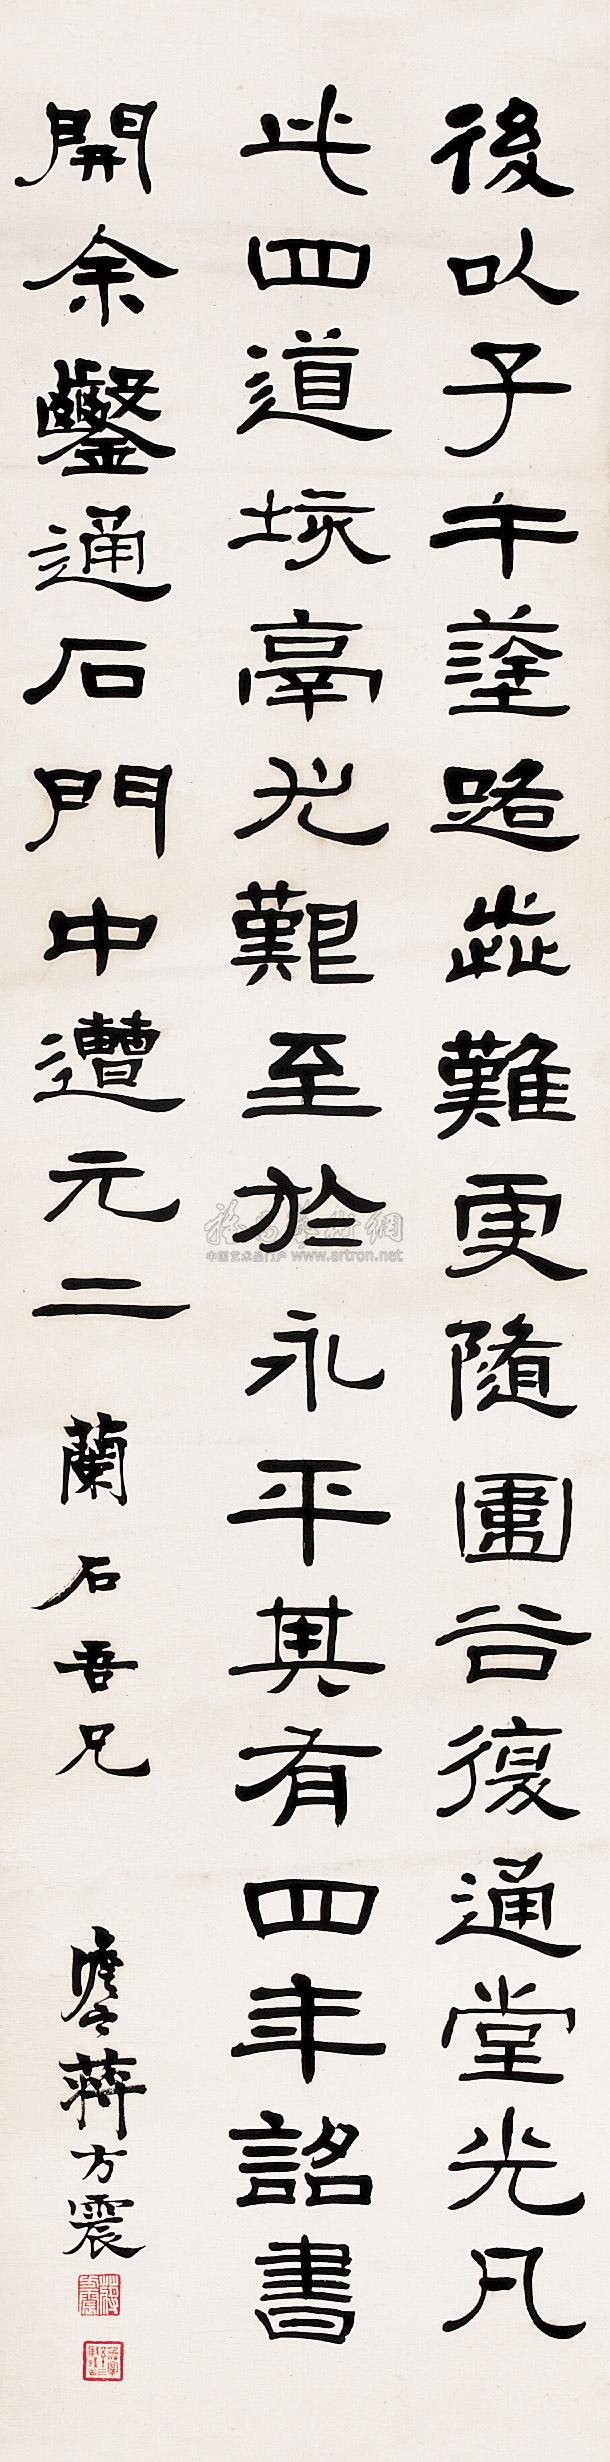 後以子午塗路歰難更隨圍谷復通堂光凡
此四道垓鬲尤艱至於永平其有四年詔書
開余鑿通石門中遭元二
蘭石吾兄
澹寧蔣方震
蔣方震
雅昌藝術網
中国艺术品门户 www.artron.net